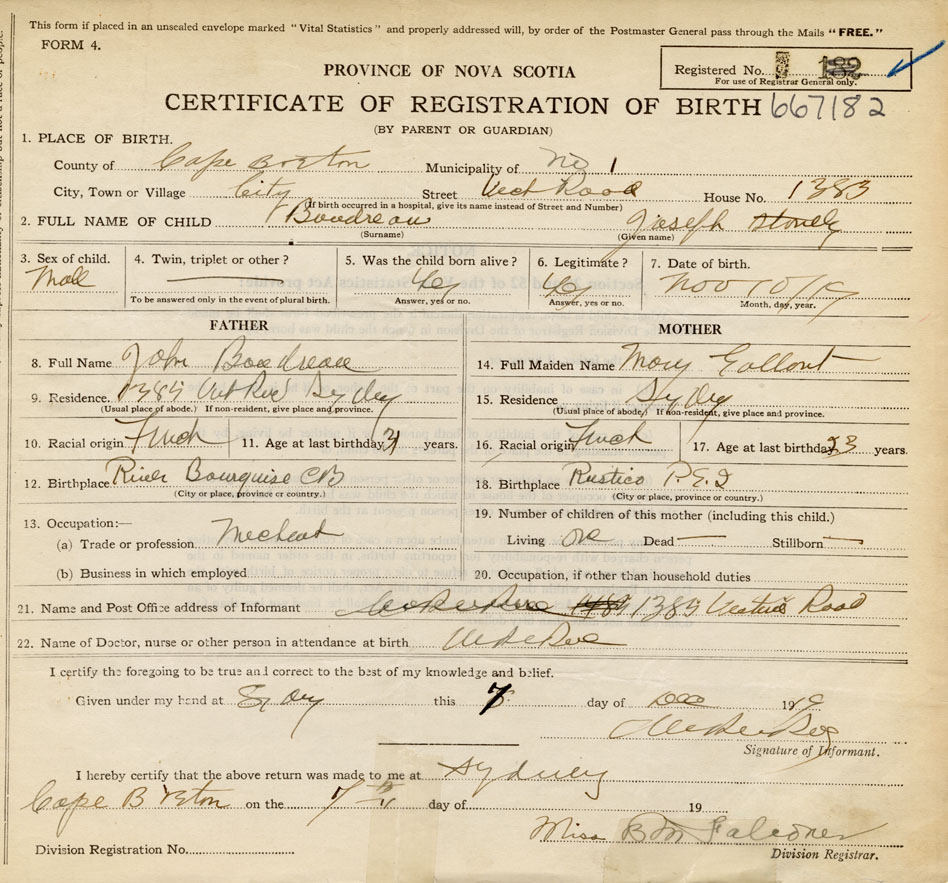 This form if placed in an unsealed envelope marked "Vital Statistics" and properly addressed will, by order of the Postmaster General pass through the Mails "FREE."
FORM 4.
PROVINCE OF NOVA SCOTIA
Registered No. 182
For use of Registrar General only.
CERTIFICATE OF REGISTRATION OF BIRTH 667182
(BY PARENT OR GUARDIAN)
1. PLACE OF BIRTH.
County of Cape Breton Municipality of No 1
City, Town or Village City Street West Road House No. 1383
(If birth occurred in a hospital, give its name instead of Street and Number)
2. FULL NAME OF CHILD Boudreau Joseph
(Surname) (Given name)
3. Sex of child. 4. Twin, triplet or other? 5. Was the child born alive? 6. Legitimate? 7. Date of birth.
Male Yes Yes Nov 10/19
To be answered only in the event of plural birth. Answer, yes or no. Answer, yes or no. Month, day, year.
FATHER MOTHER
8. Full Name John Boudreau 14. Full Maiden Name Mary Gallant
9. Residence. Sydney 15. Residence Sydney
(Usual place of abode.) If non-resident, give place and province. (Usual place of abode) If non-resident, give place and province.
10. Racial origin French 11. Age at last birthday 31 years. 16. Racial origin French 17. Age at last birthday 23 years.
12. Birthplace River Bourguise CB 18. Birthplace Rustico P.E.I
(City or place, province or country.) (City or place, province or country.)
13. Occupation:— 19. Number of children of this mother (including this child.)
(a) Trade or profession Living one Dead — Stillborn —
(b) Business in which employed 20. Occupation, if other than household duties
21. Name and Post Office address of Informant Road
22. Name of Doctor, nurse or other person in attendance at birth
I certify the foregoing to be true and correct to the best of my knowledge and belief.
Given under my hand at Sydney this 7 day of Dec 1919
Signature of Informant.
I hereby certify that the above return was made to me at Sydney
Cape Breton on the 7th day of 19
Miss B M Falconer
Division Registration No. Division Registrar.